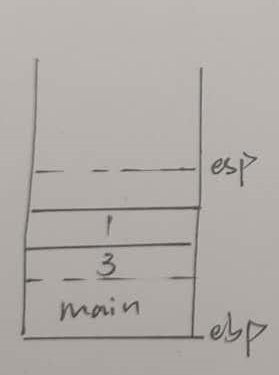 esp
1
3
main
ebp